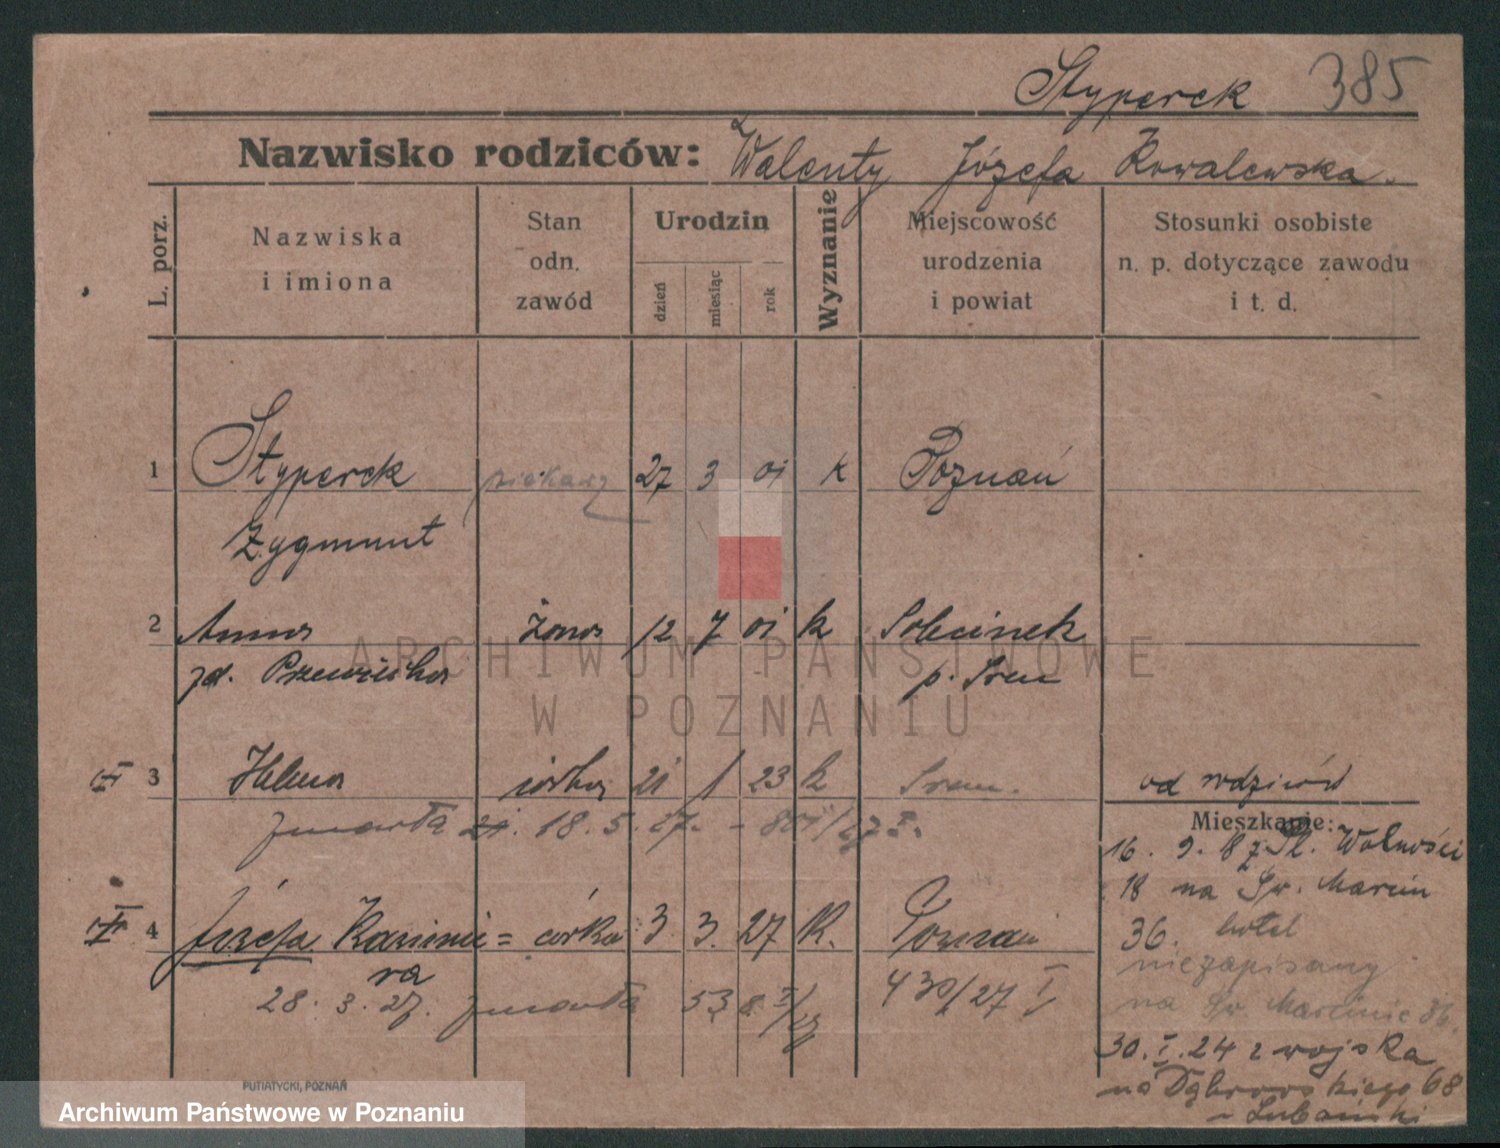 Styperek 385
Nazwisko rodziców: Walenty Józefa Kowalewska.
L. porz.
Nazwiska i imiona
Stan odn. zawód
Urodzin
dzień miesiąc rok
Wyznanie
Miejscowość urodzenia i powiat
Stosunki osobiste n. p. dotyczące zawodu i t. d.
1 Styperek piekarz 27 3 01 k Poznań
Zygmunt
2 Anna żona 12 7 01 k Sołecinek
zd. p. Śrem
3 Helena córka 21 1 23 k Śrem.
od rodziców
zmarła 21. 18. 5. 27.
Mieszkanie:
16. 9. Pl. Wolności
18 na Św. Marcin
4 Józefa Kazimie= córka 3 3. 27 k. Poznań
36. hotel
ra
niezapisany
28. 3. 27. zmarła 430/27 I
na Św. Marcinie 36.
30. I. 24 z wojska
na Dąbrowskiego 68
PUTIATYCKI, POZNAŃ
ARCHIWUM PAŃSTWOWE
W POZNANIU
Archiwum Państwowe w Poznaniu